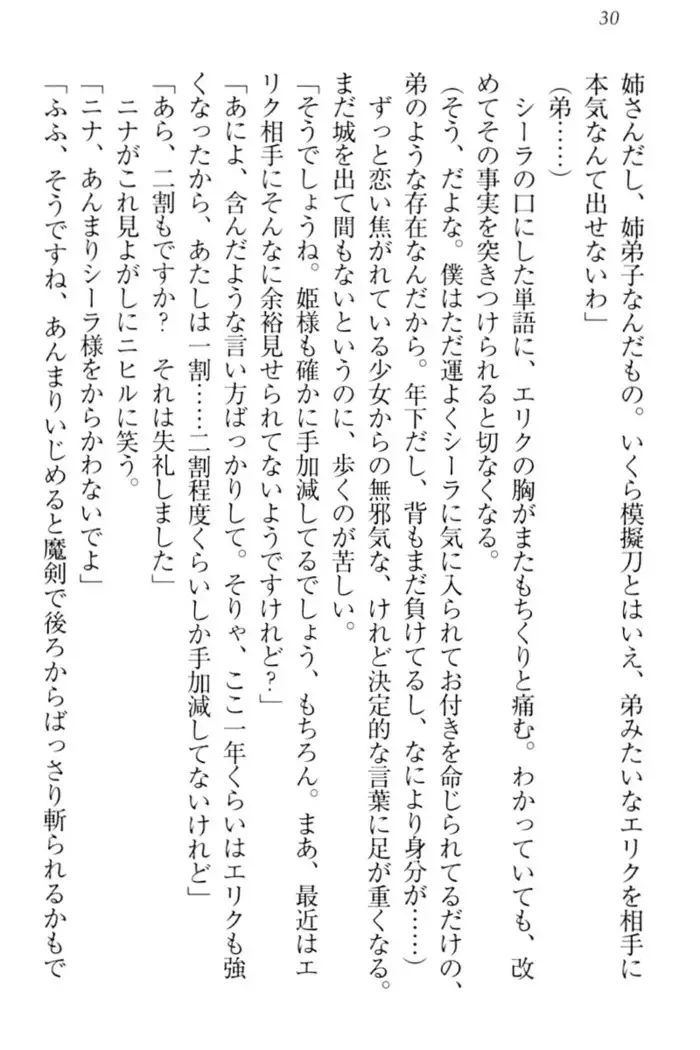 30
姉さんだし、姉弟子なんだもの。いくら模擬刀とはいえ、弟みたいなエリクを相手に
本気なんて出せないわ」
(弟……)
シーラの口にした単語に、エリクの胸がまたもちくりと痛む。わかっていても、改
めてその事実を突きつけられると切なくなる。
(そう、だよな。僕はただ運よくシーラに気に入られてお付きを命じられてるだけの、
弟のような存在なんだから。年下だし、背もまだ負けてるし、なにより身分が……)
ずっと恋い焦がれている少女からの無邪気な、けれど決定的な言葉に足が重くなる。
まだ城を出て間もないというのに、歩くのが苦しい。
「そうでしょうね。姫様も確かに手加減してるでしょう、もちろん。まあ、最近はエ
リク相手にそんなに余裕見せられてないようですけれど?」
「あによ、含んだような言い方ばっかりして。そりゃ、ここ一年くらいはエリクも強
くなったから、あたしは一割……二割程度くらいしか手加減してないけれど」
「あら、二割もですか? それは失礼しました」
ニナがこれ見よがしにニヒルに笑う。
「ニナ、あんまりシーラ様をからかわないでよ」
「ふふ、そうですね、あんまりいじめると魔剣で後ろからばっさり斬られるかもで